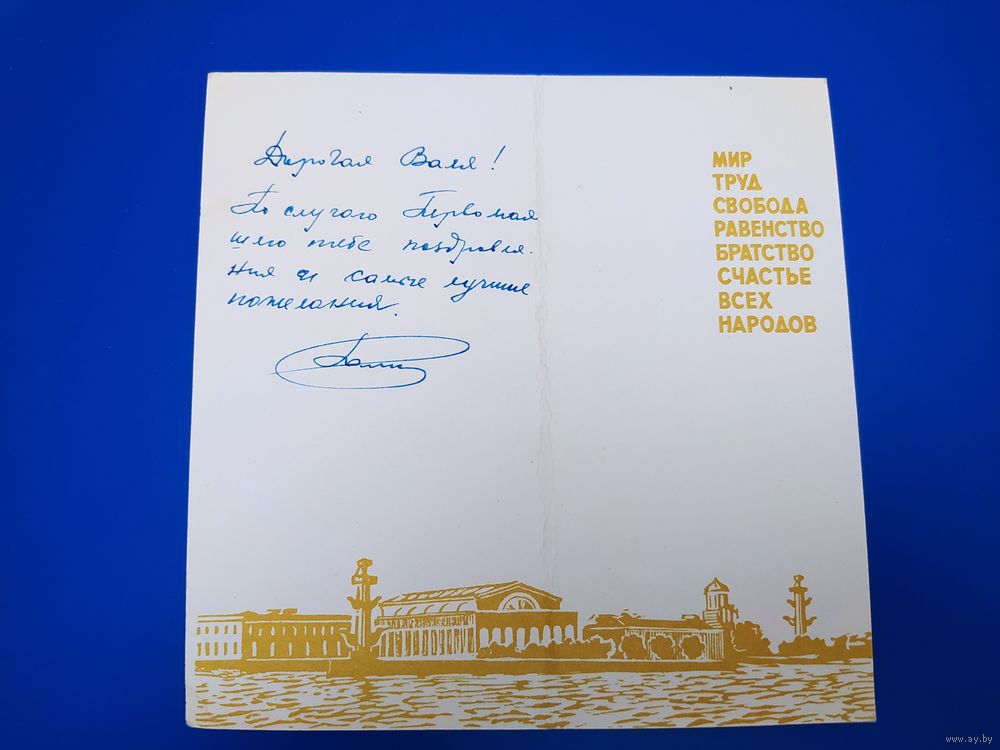 Дорогая Валя!
По случаю Первомая
шлю тебе поздравле-
ния и самые лучшие
пожелания.
МИР
ТРУД
СВОБОДА
РАВЕНСТВО
БРАТСТВО
СЧАСТЬЕ
ВСЕХ
НАРОДОВ
www.ay.by